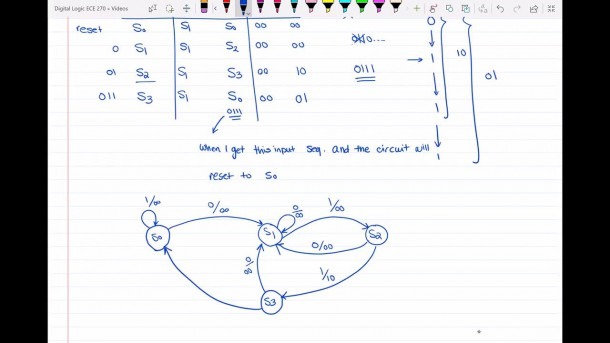 Digital Logic ECE 270 > Videos
reset S0 S1 S0 00 00
0 S1 S1 S2 00 00
01 S2 S1 S3 00 10 0111
011 S3 S1 S0 00 01
0111
0
1
1
1
10
01
when I get this input seq. and the circuit will
reset to S0
1/00 0/00 0/00 1/00
S0 S1 S2
0/00
0/00 1/10
S3